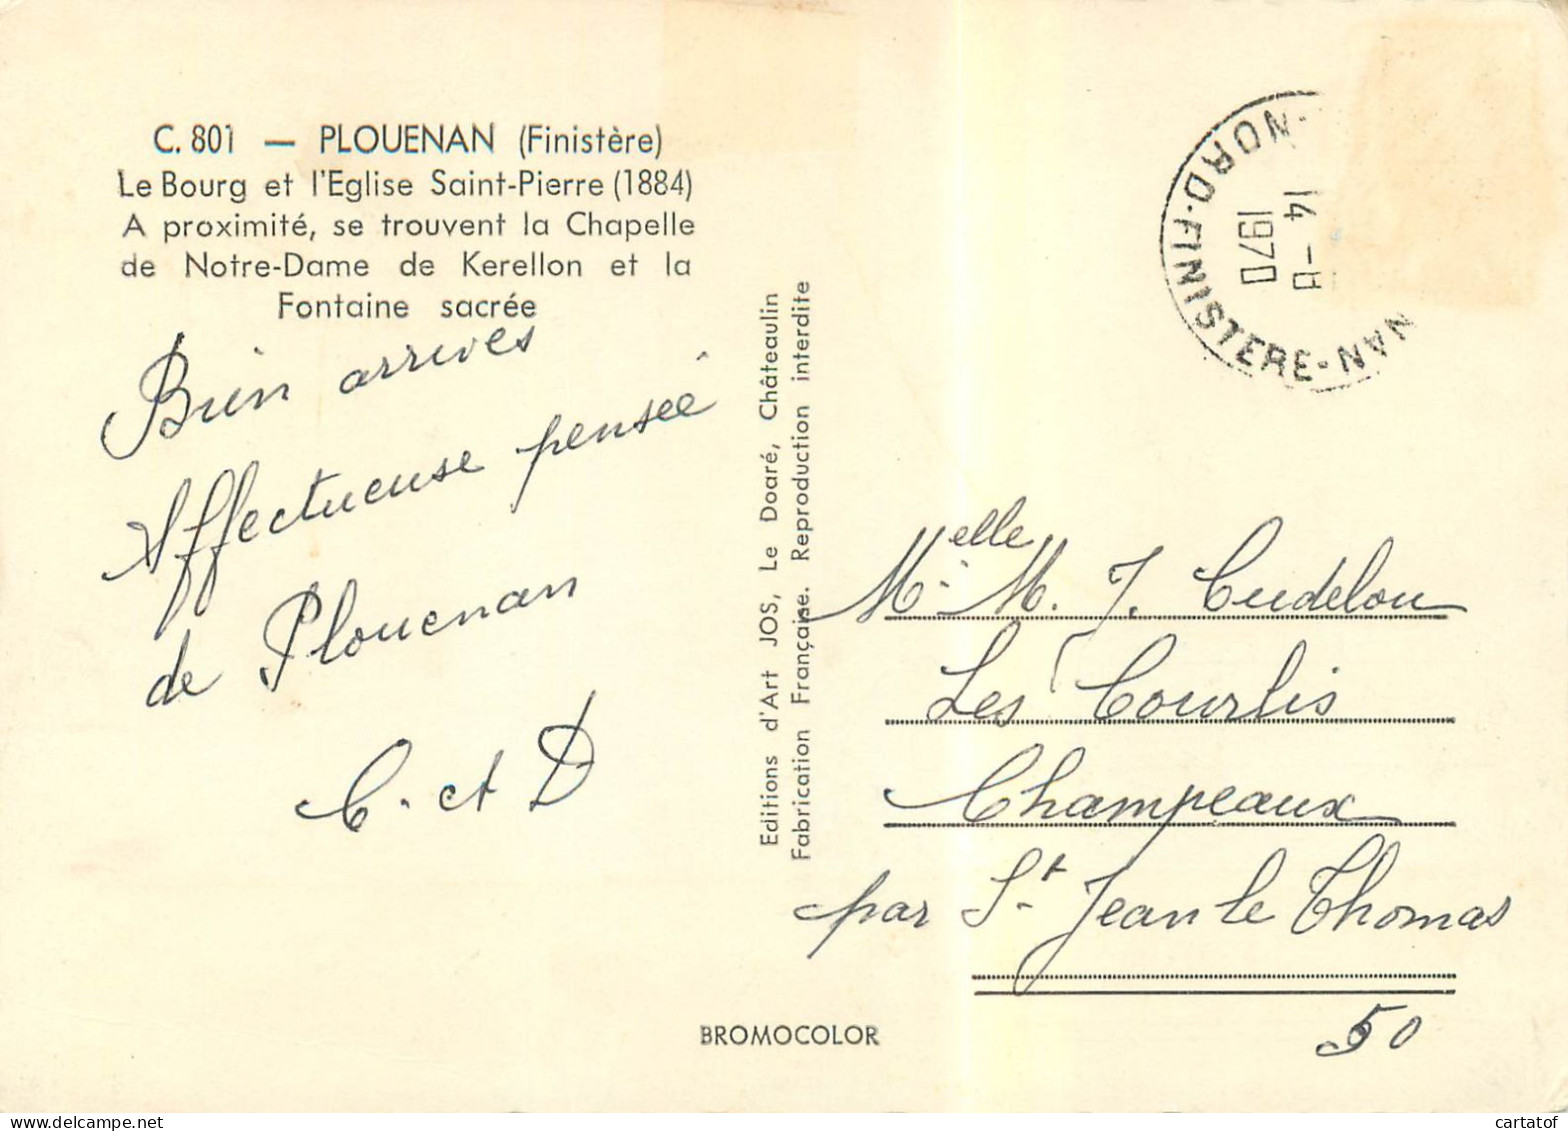 C. 801 — PLOUENAN (Finistère)
Le Bourg et l'Eglise Saint-Pierre (1884)
A proximité, se trouvent la Chapelle
de Notre-Dame de Kerellon et la
Fontaine sacrée
Bien arrivés
Affectueuse pensée
de Plouenan
C. et D
Editions d'Art JOS, Le Doaré, Châteaulin
Fabrication Française. Reproduction interdite
BROMOCOLOR
NAN-NORD-FINISTERE-
14 -8
1970
Melle M. J. Cudelou
Les Courlis
Champeaux
par St Jean le Thomas
50
www.delcampe.net
cartatof